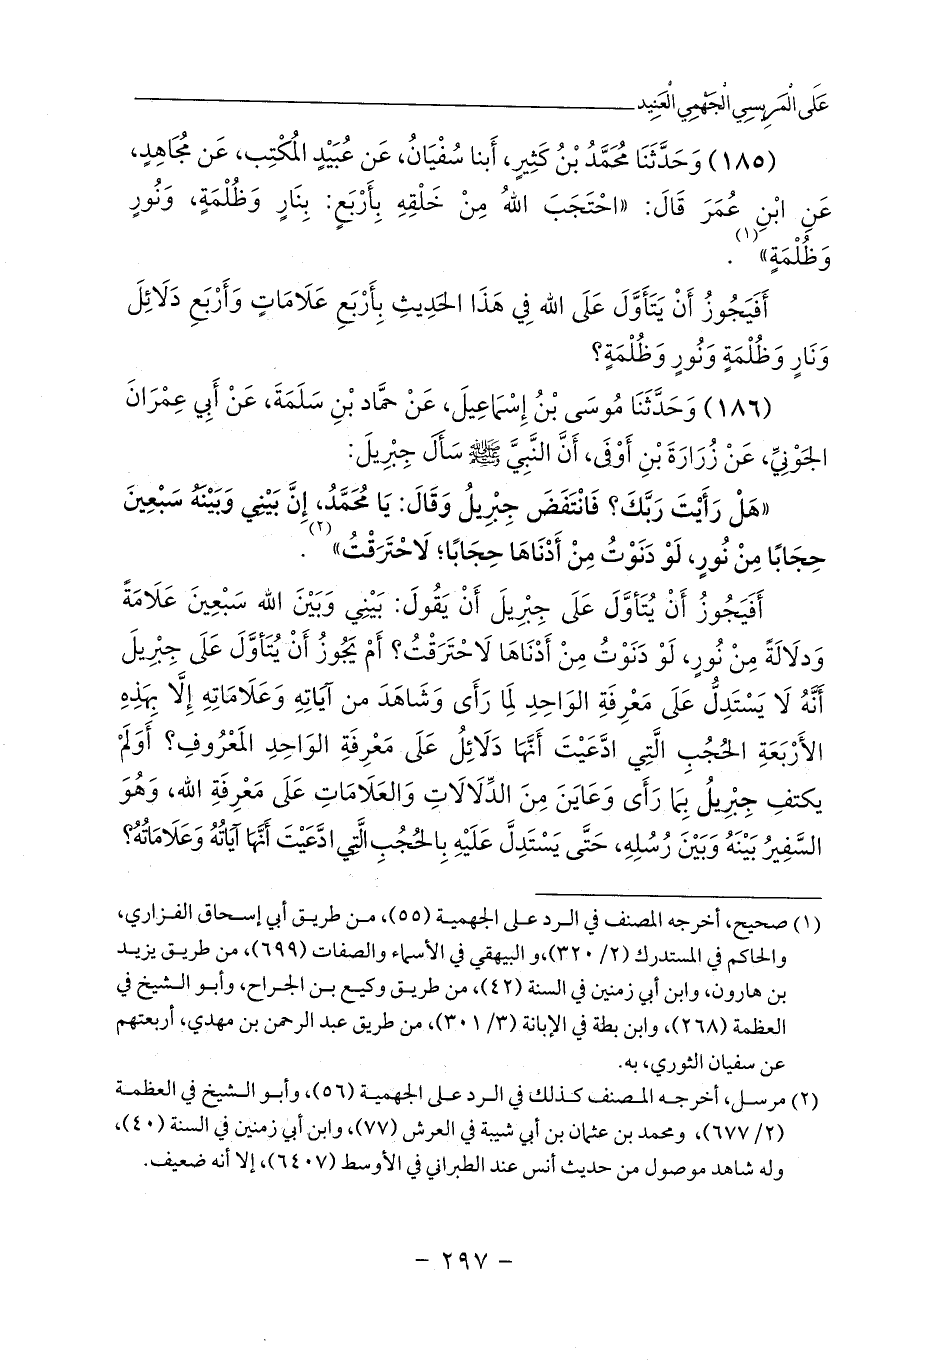 عَلَى الْمَرِيسِي الْجَهْمِي الْعَنِيد
(١٨٥) وَحَدَّثَنَا مُحَمَّدُ بْنُ كَثِيرٍ، أَبنا سُفْيَانُ، عَن عُبَيْدٍ المُكْتِبِ، عَن مُجَاهِدٍ،
عَنِ ابْنِ عُمَرَ قَالَ: «احْتَجَبَ اللهُ مِنْ خَلْقِهِ بِأَرْبَعٍ: بِنَارٍ وَظُلْمَةٍ، وَنُورٍ
وَظُلْمَةٍ» (١).
أَفَيَجُوزُ أَنْ يَتَأَوَّلَ عَلَى الله فِي هَذَا الحَدِيثِ بِأَرْبَعِ عَلَامَاتٍ وَأَرْبَعِ دَلَائِلَ
وَنَارٍ وَظُلْمَةٍ وَنُورٍ وَظُلْمَةٍ؟
(١٨٦) وَحَدَّثَنَا مُوسَى بْنُ إِسْمَاعِيلَ، عَنْ حَمَّاد بْنِ سَلَمَةَ، عَنْ أَبِي عِمْرَانَ
الجَوْنِيِّ، عَنْ زُرَارَةَ بْنِ أَوْفَى، أَنَّ النَّبِيَّ ﷺ سَأَلَ جِبْرِيلَ:
«هَلْ رَأَيْتَ رَبَّكَ؟ فَانْتَفَضَ جِبْرِيلُ وَقَالَ: يَا مُحَمَّدُ، إِنَّ بَيْنِي وَبَيْنَهُ سَبْعِينَ
حِجَابًا مِنْ نُورٍ، لَوْ دَنَوْتُ مِنْ أَدْنَاهَا حِجَابًا؛ لَاحْتَرَقْتُ» (٢).
أَفَيَجُوزُ أَنْ يُتَأوَّلَ عَلَى جِبْرِيلَ أَنْ يَقُولَ: بَيْنِي وَبَيْنَ الله سَبْعِينَ عَلَامَةً
وَدلَالَةً مِنْ نُورٍ، لَوْ دَنَوْتُ مِنْ أَدْنَاهَا لَاحْتَرَقْتُ؟ أَمْ يَجُوزُ أَنْ يُتَأوَّلَ عَلَى جِبْرِيلَ
أَنَّهُ لَا يَسْتَدِلُّ عَلَى مَعْرِفَةِ الوَاحِدِ لِمَا رَأَى وَشَاهَدَ من آيَاتِهِ وَعَلَامَاتِهِ إِلَّا بِهَذِهِ
الأَرْبَعَةِ الحُجُبِ الَّتِي ادَّعَيْتَ أَنَّهَا دَلَائِلُ عَلَى مَعْرِفَةِ الوَاحِدِ المَعْرُوفِ؟ أَوَلَمْ
يكتفِ جِبْرِيلُ بِمَا رَأَى وَعَايَنَ مِنَ الدِّلَالَاتِ وَالعَلَامَاتِ عَلَى مَعْرِفَةِ الله، وَهُوَ
السَّفِيرُ بَيْنَهُ وَبَيْنَ رُسُلِهِ، حَتَّى يَسْتَدِلَّ عَلَيْهِ بِالحُجُبِ الَّتِي ادَّعَيْتَ أَنَّهَا آيَاتُهُ وَعَلَامَاتُهُ؟
(١) صحيح، أخرجه المصنف في الرد على الجهمية (٥٥)، من طريق أبي إسحاق الفزاري،
والحاكم في المستدرك (٢/ ٣٢٠)،و البيهقي في الأسماء والصفات (٦٩٩)، من طريق يزيد
بن هارون، وابن أبي زمنين في السنة (٤٢)، من طريق وكيع بن الجراح، وأبو الشيخ في
العظمة (٢٦٨)، وابن بطة في الإبانة (٣/ ٣٠١)، من طريق عبد الرحمن بن مهدي، أربعتهم
عن سفيان الثوري، به.
(٢) مرسل، أخرجه المصنف كذلك في الرد على الجهمية (٥٦)، وأبو الشيخ في العظمة
(٢/ ٦٧٧)، ومحمد بن عثمان بن أبي شيبة في العرش (٧٧)، وابن أبي زمنين في السنة (٤٠)،
وله شاهد موصول من حديث أنس عند الطبراني في الأوسط (٦٤٠٧)، إلا أنه ضعيف.
- ٢٩٧ -